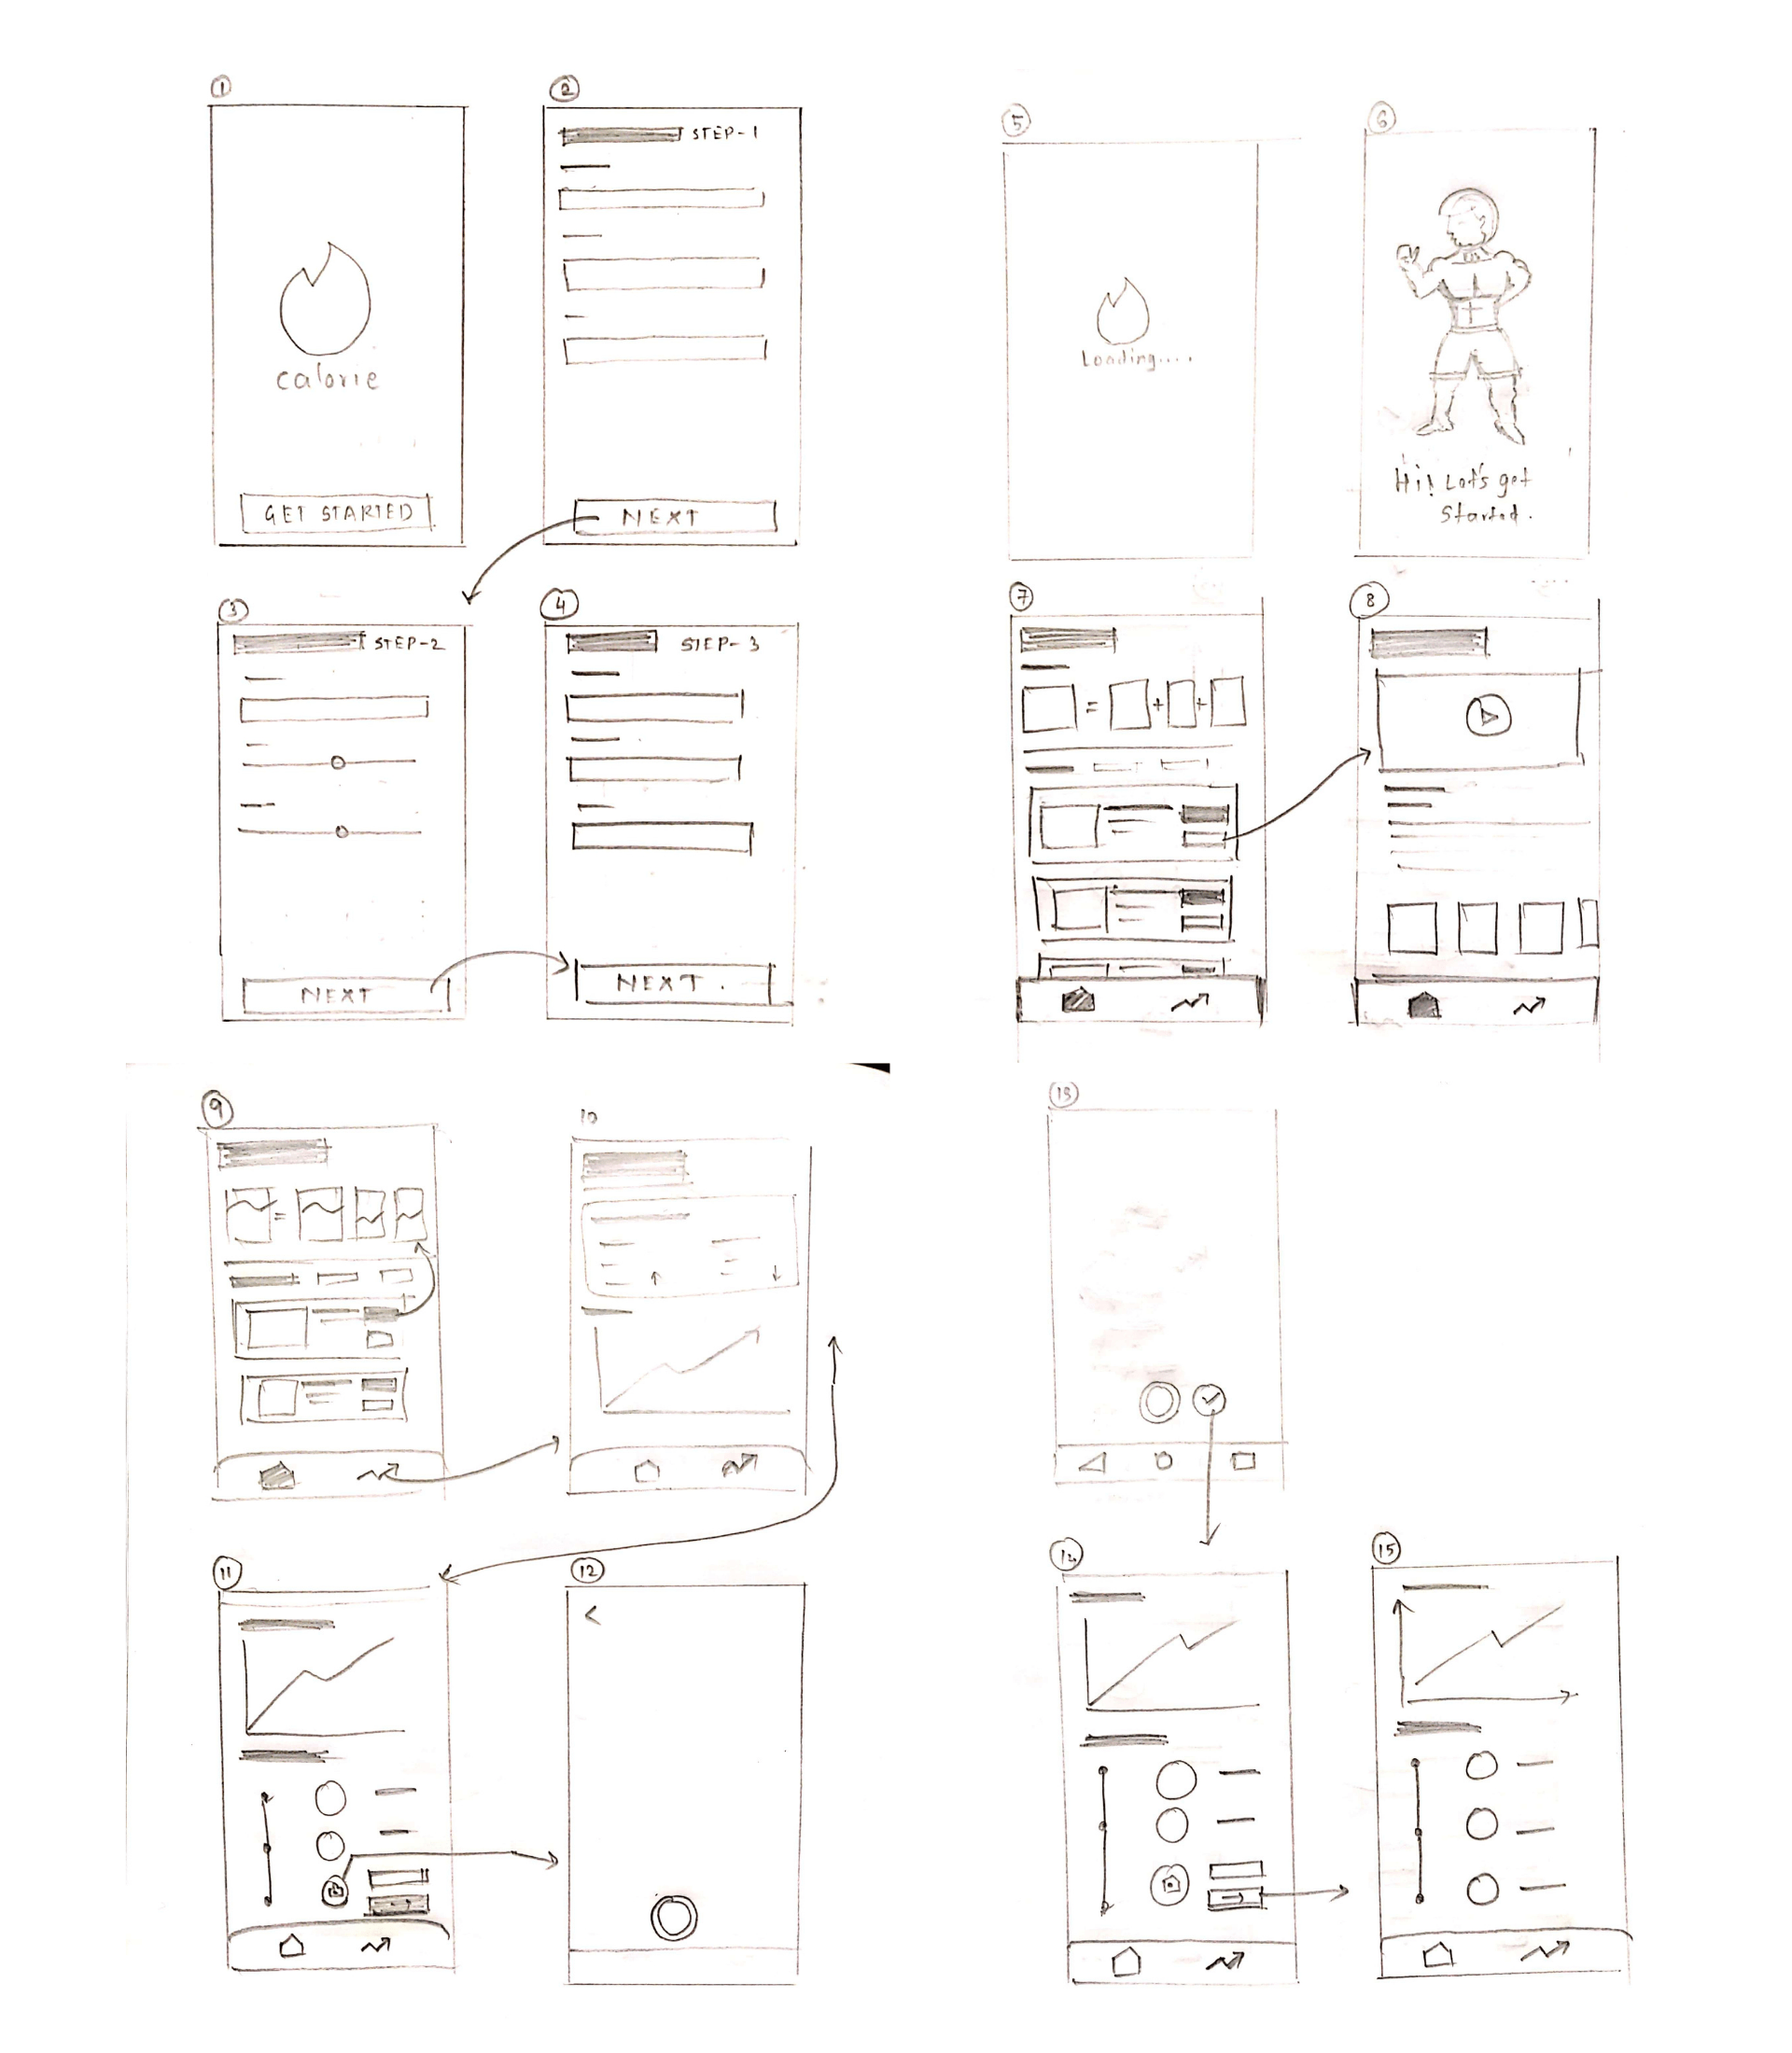 1
calorie
GET STARTED
2
STEP-1
NEXT
3
STEP-2
NEXT
4
STEP-3
NEXT.
5
Loading....
6
Hi! Let's get
Started.
7
= + +
8
9
=
10
11
12
<
13
14
15